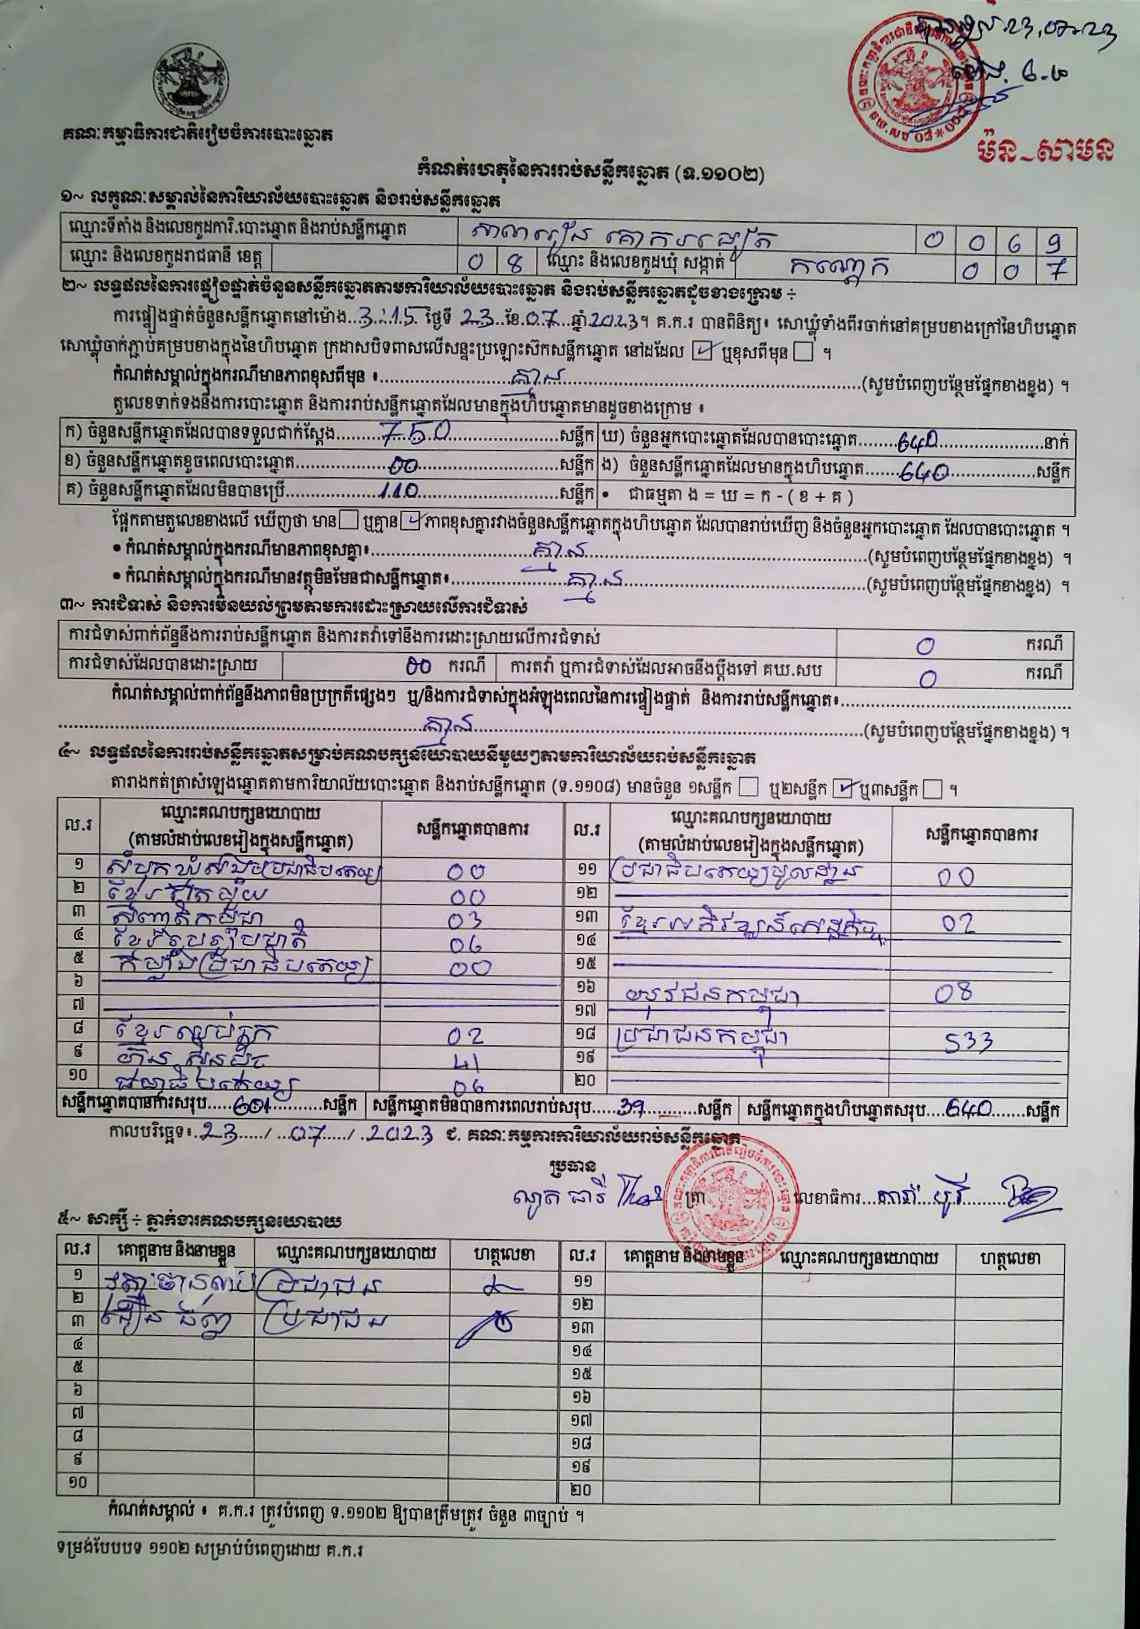 គណៈកម្មាធិការជាតិរៀបចំការបោះឆ្នោត
ម៉ន~សាមន
កំណត់ហេតុនៃការរាប់សន្លឹកឆ្នោត (ទ.១១០២)
១~ លក្ខណៈសម្គាល់នៃការិយាល័យបោះឆ្នោត និងរាប់សន្លឹកឆ្នោត
ឈ្មោះទីតាំង និងលេខកូដការិ.បោះឆ្នោត និងរាប់សន្លឹកឆ្នោត សាលារៀន គោករវៀត 0 0 6 9
ឈ្មោះ និងលេខកូដរាជធានី ខេត្ត 0 8 ឈ្មោះ និងលេខកូដឃុំ សង្កាត់ កណ្តែក 0 0 7
២~ លទ្ធផលនៃការផ្ទៀងផ្ទាត់ចំនួនសន្លឹកឆ្នោតតាមការិយាល័យបោះឆ្នោត និងរាប់សន្លឹកឆ្នោតដូចខាងក្រោម ÷
ការផ្ទៀងផ្ទាត់ចំនួនសន្លឹកឆ្នោតនៅម៉ោង 3:15 ថ្ងៃទី 23 ខែ 07 ឆ្នាំ 2023។ គ.ក.រ បានពិនិត្យ៖ សោឃ្លុំទាំងពីរចាក់នៅគម្របខាងក្រៅនៃហិបឆ្នោត
សោឃ្លុំចាក់ភ្ជាប់គម្របខាងក្នុងនៃហិបឆ្នោត ក្រដាសបិទពាសលើសន្ទះប្រឡោះស៊កសន្លឹកឆ្នោត នៅដដែល ☑ ឬខុសពីមុន ☐ ។
កំណត់សម្គាល់ក្នុងករណីមានភាពខុសពីមុន ៖ គ្មាន (សូមបំពេញបន្ថែមផ្នែកខាងខ្នង) ។
តួលេខទាក់ទងនឹងការបោះឆ្នោត និងការរាប់សន្លឹកឆ្នោតដែលមានក្នុងហិបឆ្នោតមានដូចខាងក្រោម ៖
ក) ចំនួនសន្លឹកឆ្នោតដែលបានទទួលជាក់ស្តែង 750 សន្លឹក ឃ) ចំនួនអ្នកបោះឆ្នោតដែលបានបោះឆ្នោត 640 នាក់
ខ) ចំនួនសន្លឹកឆ្នោតខូចពេលបោះឆ្នោត 00 សន្លឹក ង) ចំនួនសន្លឹកឆ្នោតដែលមានក្នុងហិបឆ្នោត 640 សន្លឹក
គ) ចំនួនសន្លឹកឆ្នោតដែលមិនបានប្រើ 110 សន្លឹក • ជាធម្មតា ង = ឃ = ក - ( ខ + គ )
ផ្អែកតាមតួលេខខាងលើ ឃើញថា មាន ☐ ឬគ្មាន ☑ ភាពខុសគ្នារវាងចំនួនសន្លឹកឆ្នោតក្នុងហិបឆ្នោត ដែលបានរាប់ឃើញ និងចំនួនអ្នកបោះឆ្នោត ដែលបានបោះឆ្នោត ។
• កំណត់សម្គាល់ក្នុងករណីមានភាពខុសគ្នា៖ គ្មាន (សូមបំពេញបន្ថែមផ្នែកខាងខ្នង) ។
• កំណត់សម្គាល់ក្នុងករណីមានវត្ថុមិនមែនជាសន្លឹកឆ្នោត៖ គ្មាន (សូមបំពេញបន្ថែមផ្នែកខាងខ្នង) ។
៣~ ការជំទាស់ និងការមិនយល់ព្រមតាមការដោះស្រាយលើការជំទាស់
ការជំទាស់ពាក់ព័ន្ធនឹងការរាប់សន្លឹកឆ្នោត និងការតវ៉ាទៅនឹងការដោះស្រាយលើការជំទាស់ 0 ករណី
ការជំទាស់ដែលបានដោះស្រាយ 00 ករណី ការតវ៉ា ឬការជំទាស់ដែលអាចនឹងប្តឹងទៅ គឃ.សប 0 ករណី
កំណត់សម្គាល់ពាក់ព័ន្ធនឹងភាពមិនប្រក្រតីផ្សេងៗ ឬ/និងការជំទាស់ក្នុងអំឡុងពេលនៃការផ្ទៀងផ្ទាត់ និងការរាប់សន្លឹកឆ្នោត៖
គ្មាន (សូមបំពេញបន្ថែមផ្នែកខាងខ្នង) ។
៤~ លទ្ធផលនៃការរាប់សន្លឹកឆ្នោតសម្រាប់គណបក្សនយោបាយនីមួយៗតាមការិយាល័យរាប់សន្លឹកឆ្នោត
តារាងកត់ត្រាសំឡេងឆ្នោតតាមការិយាល័យបោះឆ្នោត និងរាប់សន្លឹកឆ្នោត (ទ.១១០៨) មានចំនួន ១សន្លឹក ☐ ឬ២សន្លឹក ☑ ឬ៣សន្លឹក ☐ ។
ល.រ ឈ្មោះគណបក្សនយោបាយ (តាមលំដាប់លេខរៀងក្នុងសន្លឹកឆ្នោត) សន្លឹកឆ្នោតបានការ ល.រ ឈ្មោះគណបក្សនយោបាយ (តាមលំដាប់លេខរៀងក្នុងសន្លឹកឆ្នោត) សន្លឹកឆ្នោតបានការ
១ សំបុកឃ្មុំសង្គមប្រជាធិបតេយ្យ 00 ១១ ប្រជាធិបតេយ្យមូលដ្ឋាន 00
២ ខ្មែររួបរួម 00 ១២
៣ សញ្ជាតិកម្ពុជា 03 ១៣ ខ្មែរអភិវឌ្ឍន៍សេដ្ឋកិច្ច 02
៤ ខ្មែររួបរួមជាតិ 06 ១៤
៥ កម្លាំងប្រជាធិបតេយ្យ 00 ១៥
៦ ១៦ យុវជនកម្ពុជា 08
៧ ១៧
៨ ខ្មែរឈប់ក្រ 02 ១៨ ប្រជាជនកម្ពុជា 533
៩ ហ៊្វុនស៊ិនប៉ិច 41 ១៩
១០ ឆន្ទៈធិបតេយ្យ 06 ២០
សន្លឹកឆ្នោតបានការសរុប 601 សន្លឹក សន្លឹកឆ្នោតមិនបានការពេលរាប់សរុប 39 សន្លឹក សន្លឹកឆ្នោតក្នុងហិបឆ្នោតសរុប 640 សន្លឹក
កាលបរិច្ឆេទ៖ 23 / 07 / 2023 ជ. គណៈកម្មការការិយាល័យរាប់សន្លឹកឆ្នោត
ប្រធាន
ត្រា លេខាធិការ
៥~ សាក្សី ÷ ភ្នាក់ងារគណបក្សនយោបាយ
ល.រ គោត្តនាម និងនាមខ្លួន ឈ្មោះគណបក្សនយោបាយ ហត្ថលេខា ល.រ គោត្តនាម និងនាមខ្លួន ឈ្មោះគណបក្សនយោបាយ ហត្ថលេខា
១ ប្រជាជន ១១
២ ១២
៣ ប្រជាជន ១៣
៤ ១៤
៥ ១៥
៦ ១៦
៧ ១៧
៨ ១៨
៩ ១៩
១០ ២០
កំណត់សម្គាល់ ៖ គ.ក.រ ត្រូវបំពេញ ទ.១១០២ ឱ្យបានត្រឹមត្រូវ ចំនួន ៣ច្បាប់ ។
ទម្រង់បែបបទ ១១០២ សម្រាប់បំពេញដោយ គ.ក.រ